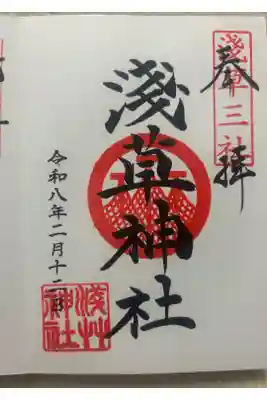 奉拝
淺草三社
淺草神社
令和八年二月十二日
淺草神社